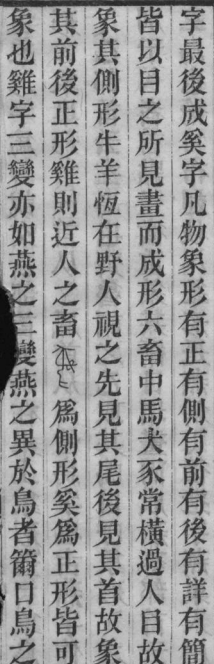 字最後成奚字凡物象形有正有側有前有後有詳有簡
皆以目之所見畫而成形六畜中馬犬豕常橫過人目故
象其側形牛羊恆在野人視之先見其尾後見其首故象
其前後正形雞則近人之畜爲側形奚爲正形皆可
象也雞字三變亦如燕之三變燕之異於鳥者籋口鳥之